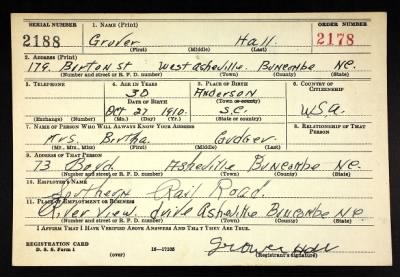 SERIAL NUMBER 1. NAME (Print) ORDER NUMBER
2188 Grover Hall 2178
(First) (Middle) (Last)
2. ADDRESS (Print)
179. Burton St West Asheville. Buncombe N.C.
(Number and street or R. F. D. number) (Town) (County) (State)
3. TELEPHONE 4. AGE IN YEARS 5. PLACE OF BIRTH 6. COUNTRY OF CITIZENSHIP
30 Anderson
DATE OF BIRTH (Town or county)
Oct 27 1910. S.C. U.S.A.
(Exchange) (Number) (Mo.) (Day) (Yr.) (State or country)
7. NAME OF PERSON WHO WILL ALWAYS KNOW YOUR ADDRESS 8. RELATIONSHIP OF THAT PERSON
Mrs. Bertha Gudger
(Mr., Mrs., Miss) (First) (Middle) (Last)
9. ADDRESS OF THAT PERSON
73 Asheville Buncombe N.C.
(Number and street or R. F. D. number) (Town) (County) (State)
10. EMPLOYER'S NAME
Southern Rail Road.
11. PLACE OF EMPLOYMENT OR BUSINESS
River View. drive Asheville Buncombe N.C.
(Number and street or R. F. D. number) (Town) (County) (State)
I AFFIRM THAT I HAVE VERIFIED ABOVE ANSWERS AND THAT THEY ARE TRUE.
REGISTRATION CARD
D. S. S. Form 1 (over) 16—17105 Grover Hall
(Registrant's signature)